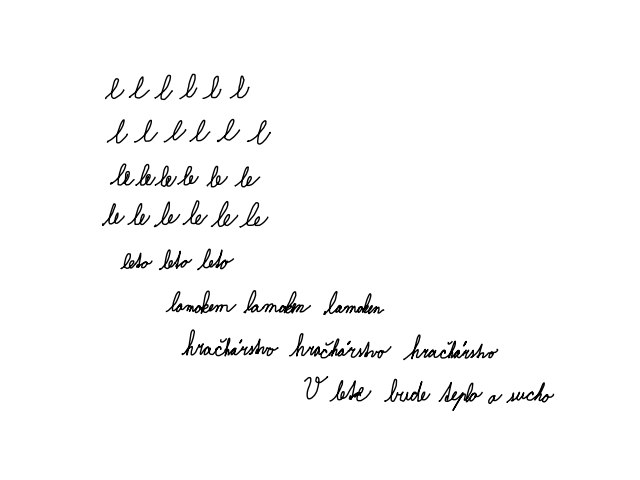 l l l l l l
l l l l l l
le le le le le le
le le le le le le
leto leto leto
lamokem lamokem lamoken
hračkárstvo hračkárstvo hračkárstvo
V lete bude teplo a sucho